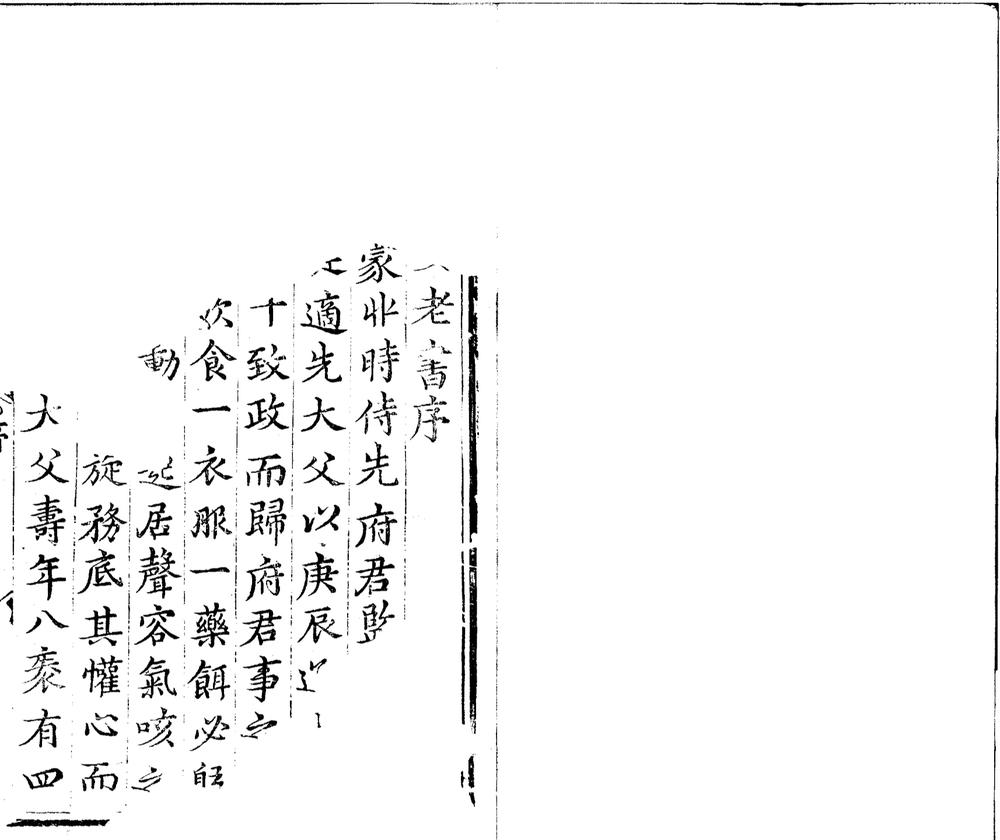 老書序
家丱時侍先府君
適先大父以庚辰
十致政而歸府君事之
食一衣服一藥餌必
動
起居聲容氣咳之
旋務底其懽心而
大父壽年八袠有四